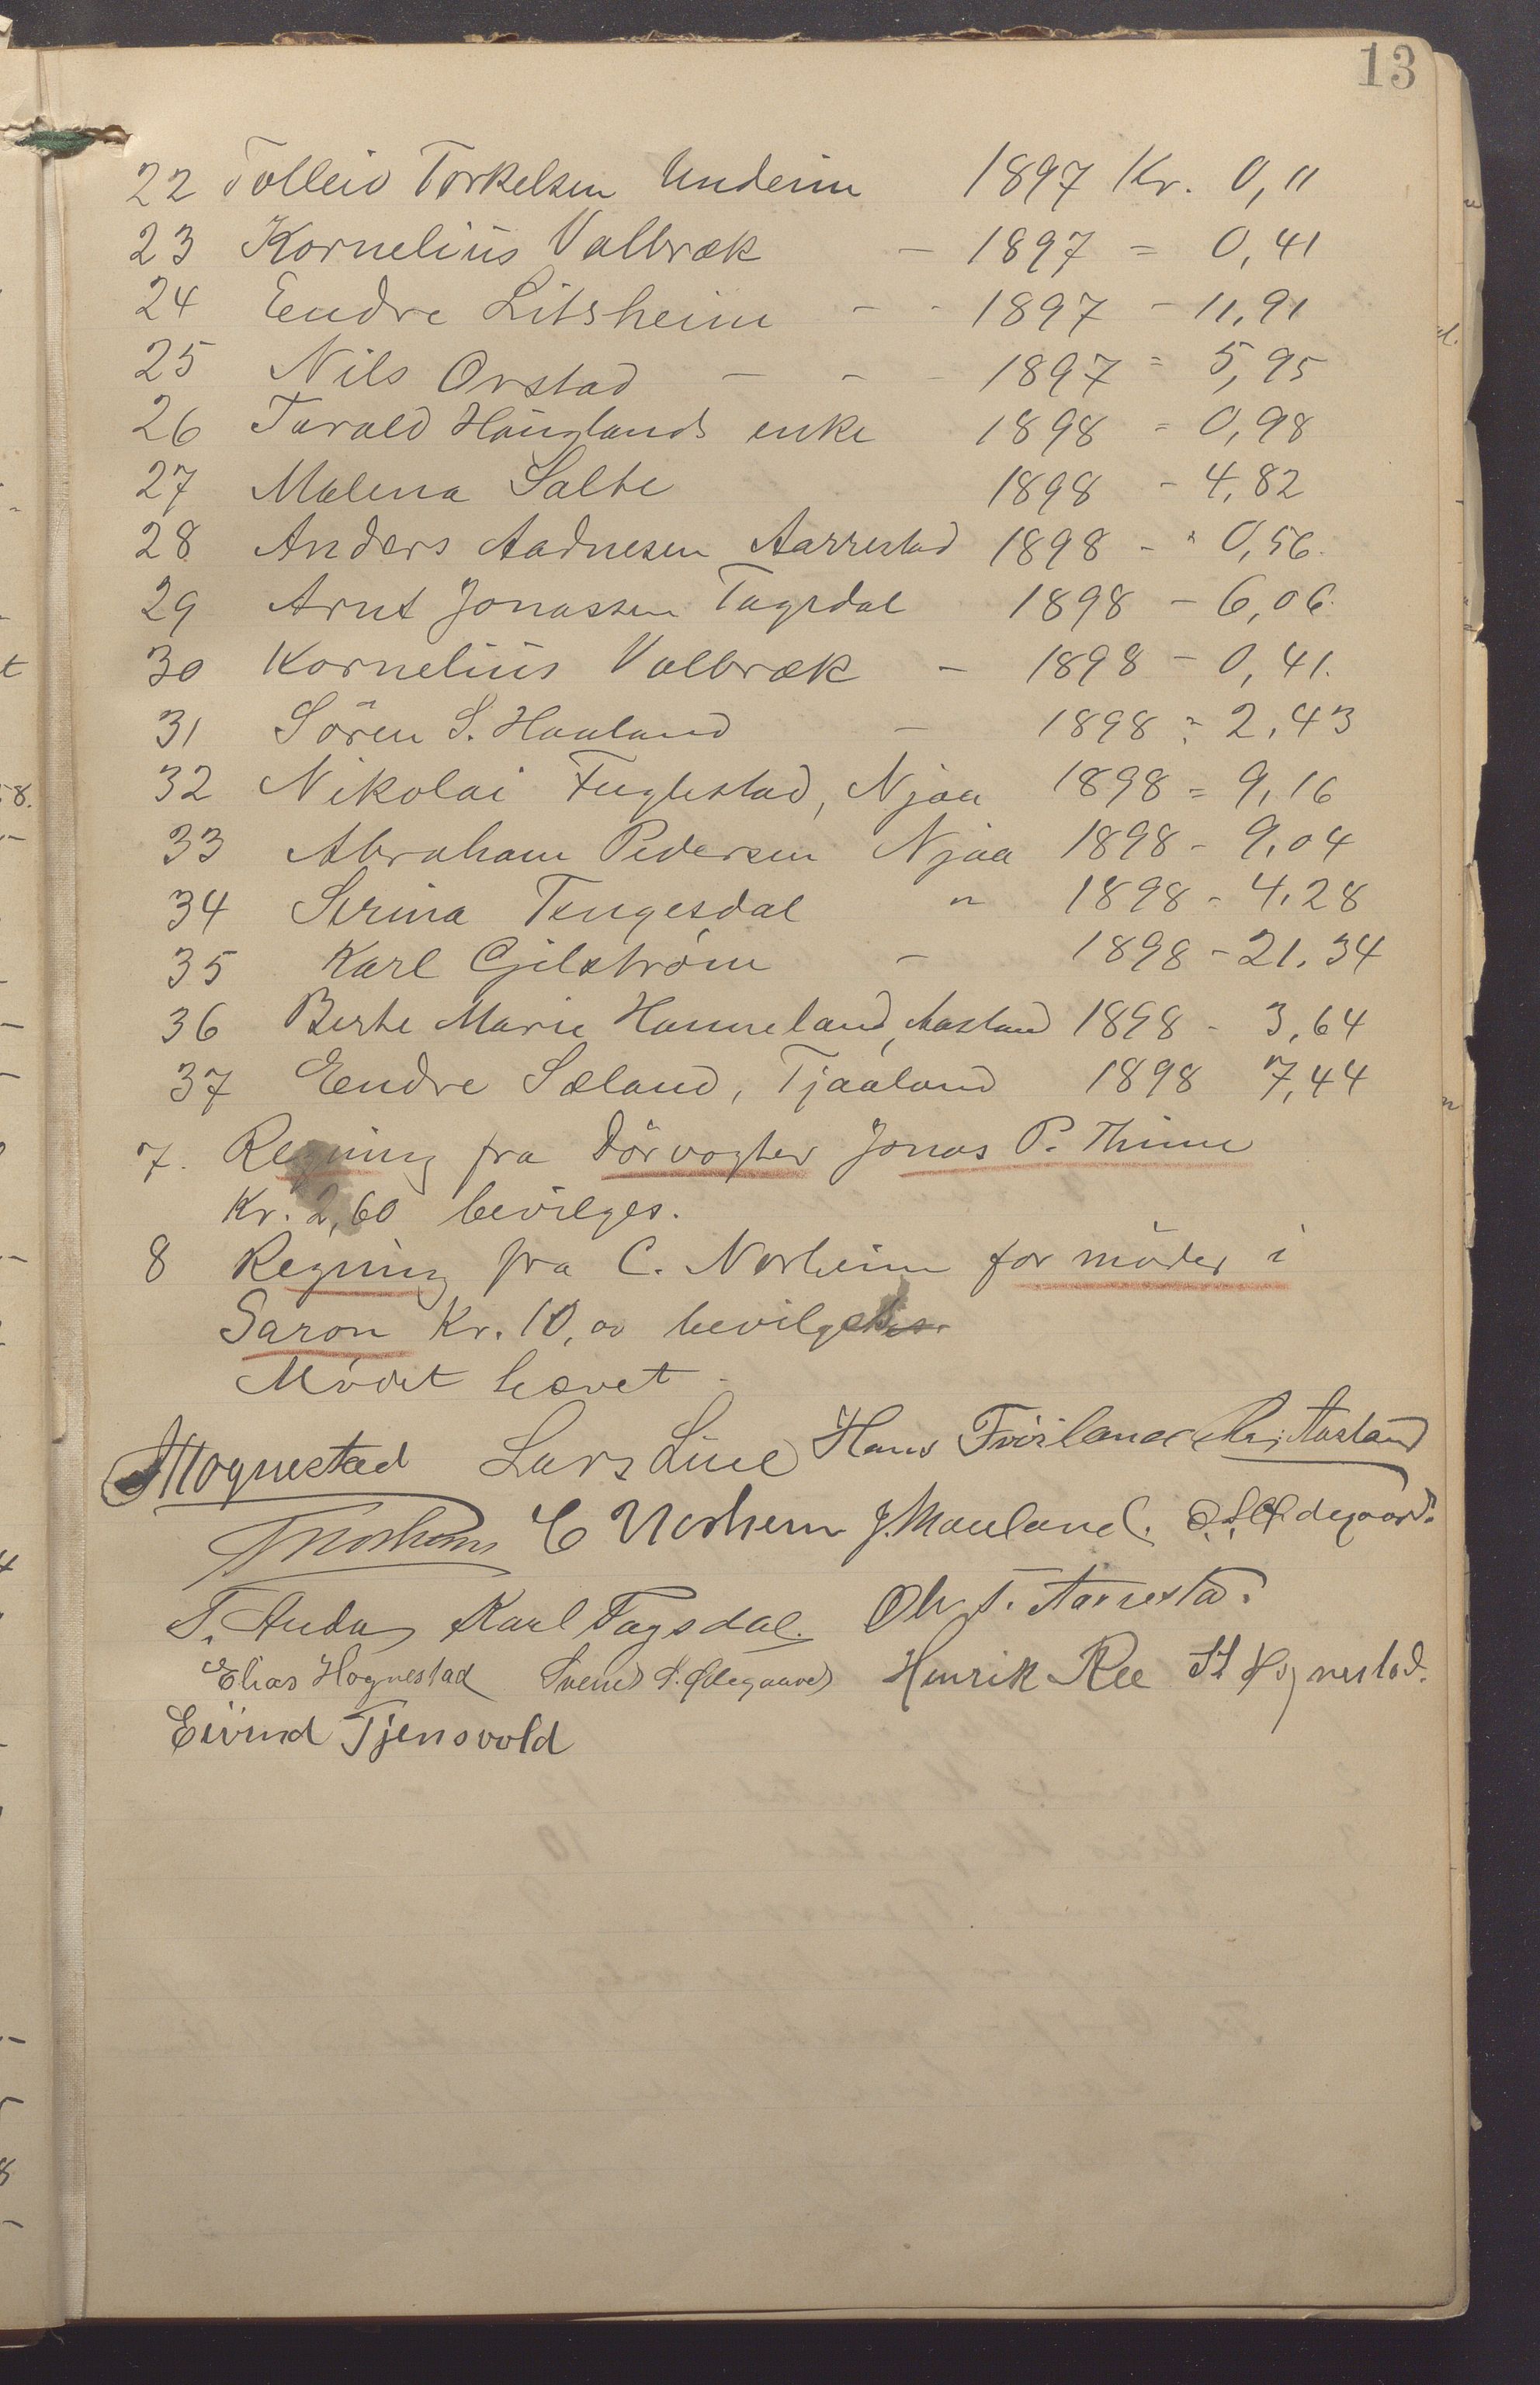 13
22 Tolleiv Torkelsen Underim 1897 Kr. 0,11
23 Kornelius Valbræk - 1897 = 0,41
24 Eendre Litsheim - - 1897 - 11,91
25 Nils Orstad - - - 1897 = 5,95
26 Tarald Hauglands enke 1898 = 0,98
27 Malena Salte 1898 - 4,82
28 Anders Aadnesen Aarrestad 1898 - " 0,56.
29 Arnt Jonassen Tagsdal 1898 - 6,06.
30 Kornelius Valbræk - 1898 - 0,41.
31 Sören S. Haaland - 1898 = 2,43
32 Nikolai Fuglestad, Njaa 1898 = 9,16
33 Abraham Pedersen Njaa 1898 - 9,04
34 Serina Tengesdal " 1898 - 4,28
35 Karl Gilström - 1898 - 21,34
36 Berte Marie Hammeland, Aasland 1898 - 3,64
37 Eendre Sæland, Tjaaland 1898 7,44
7. Regning fra Dörvogter Jonas P. Thime
Kr. 2,60 bevilges.
8 Regning fra C. Norheim for möder i
Saron Kr. 10,00 bevilges.
Mödet hævet.
Hognestad Lars Lise Hans Fröiland Aasland
C Norheim J. Mauland. Ødegaard.
T. Auda Karl Tagsdal. Ole T. Aarrestad.
Elias Hognestad Svend S. Ødegaard Henrik Ree St Hognestad.
Eivind Tjensvold